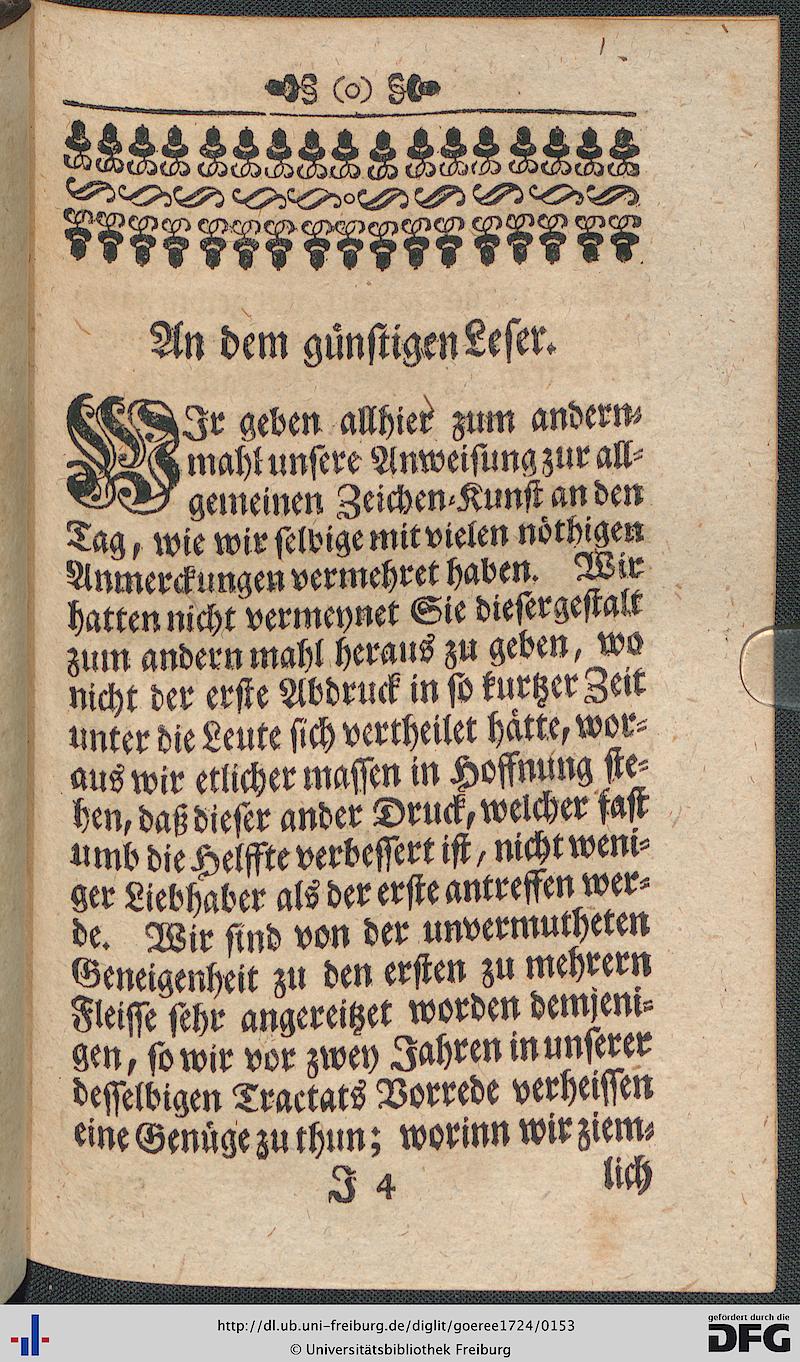 § (o) §
An dem günstigen Leser.
WIr geben allhier zum andern-
mahl unsere Anweisung zur all-
gemeinen Zeichen-Kunst an den
Tag, wie wir selbige mit vielen nöthigen
Anmerckungen vermehret haben. Wir
hatten nicht vermeynet Sie diesergestalt
zum andern mahl heraus zu geben, wo
nicht der erste Abdruck in so kurtzer Zeit
unter die Leute sich vertheilet hätte, wor-
aus wir etlicher massen in Hoffnung ste-
hen, daß dieser ander Druck, welcher fast
umb die Helffte verbessert ist, nicht weni-
ger Liebhaber als der erste antreffen wer-
de. Wir sind von der unvermutheten
Geneigenheit zu den ersten zu mehrern
Fleisse sehr angereitzet worden demjeni-
gen, so wir vor zwey Jahren in unserer
desselbigen Tractats Vorrede verheissen
eine Genüge zu thun; worinn wir ziem-
J 4 lich
http://dl.ub.uni-freiburg.de/diglit/goeree1724/0153
© Universitätsbibliothek Freiburg
gefördert durch die
DFG